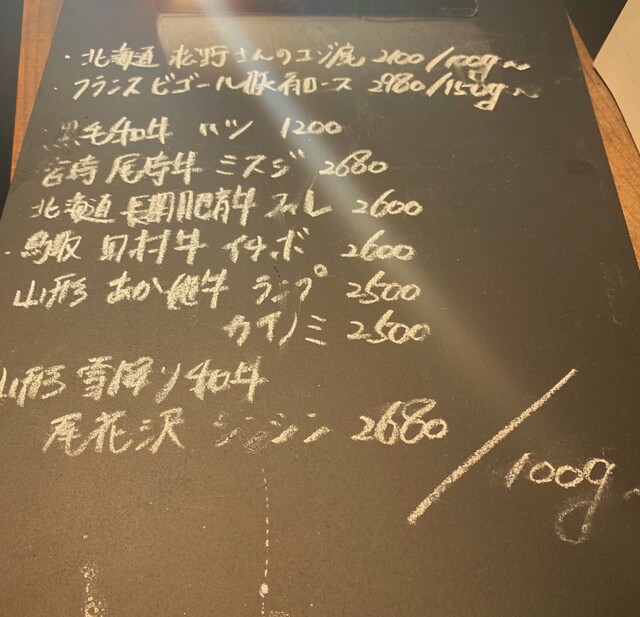 ・北海道 松野さんのエゾ鹿 2100/100g～
・フランス ビゴール豚肩ロース 2980/150g～
黒毛和牛 ハツ 1200
宮崎 尾崎牛 ミスジ 2680
北海道 長期肥育牛 フィレ 2600
・鳥取 田村牛 イチボ 2600
山形 あか牛 ランプ 2500
カイノミ 2500
山形 雪降り和牛
尾花沢 シンシン 2680
/100g～